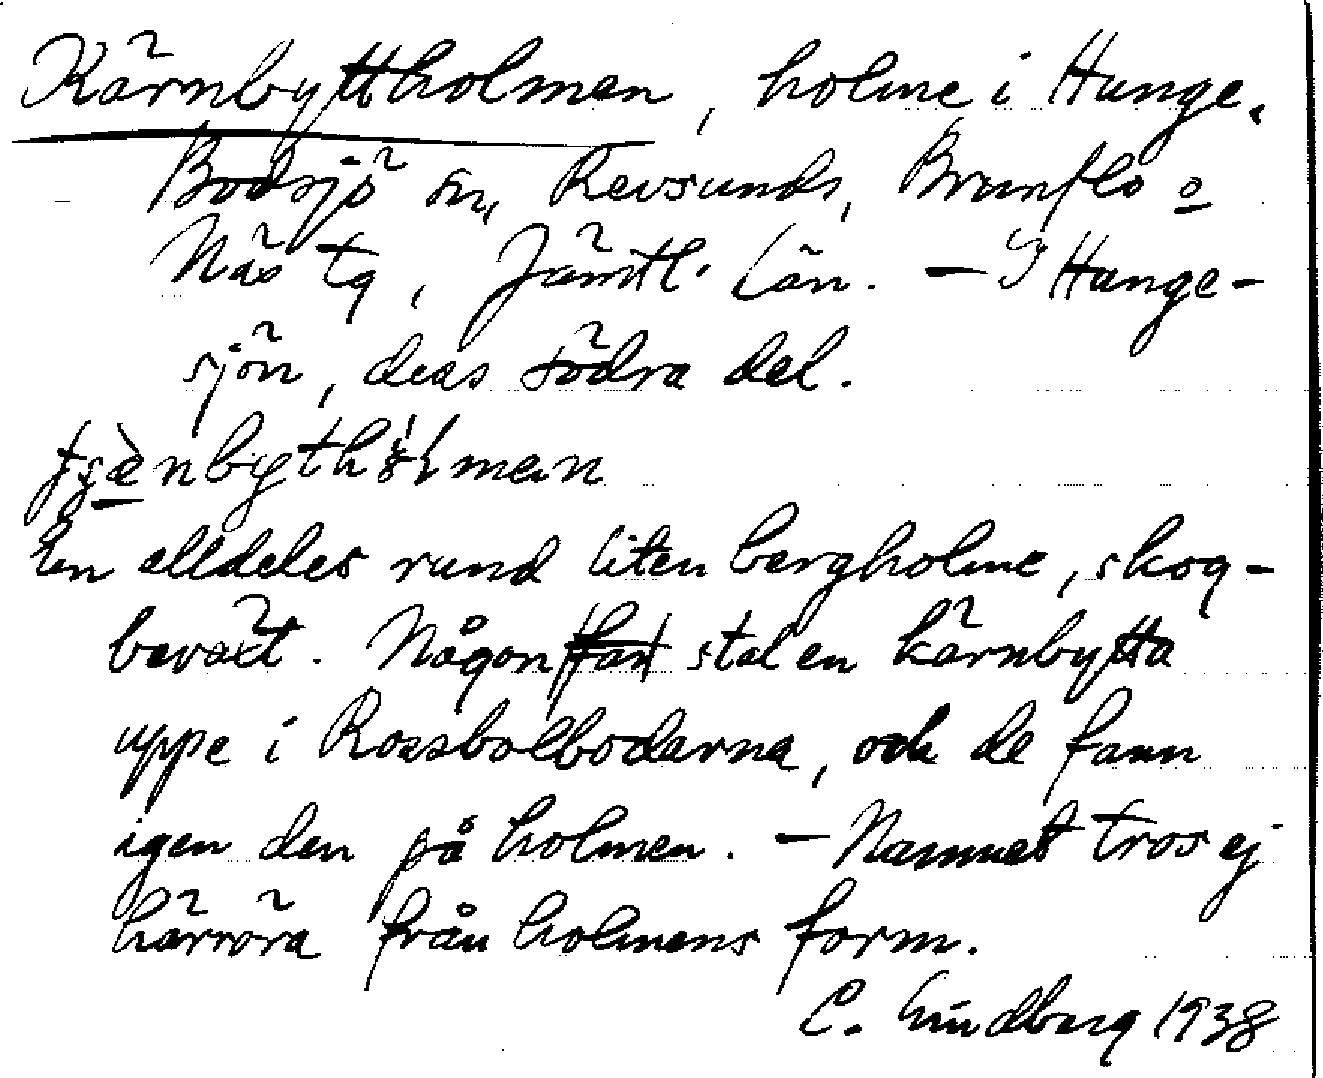 Kärnbyttholmen, holme i Hunge,
Bodsjö sn, Revsunds, Brunflo o
Näs tg, Jämtl. län. — I Hunge-
sjön, dess södra del.
En alldeles rund liten bergholme, skog-
beväxt. Någon stal en kärnbytta
uppe i Rossbolbodarna, och de fann
igen den på holmen. — Namnet tros ej
härröra från holmens form.
C. Lindberg 1938